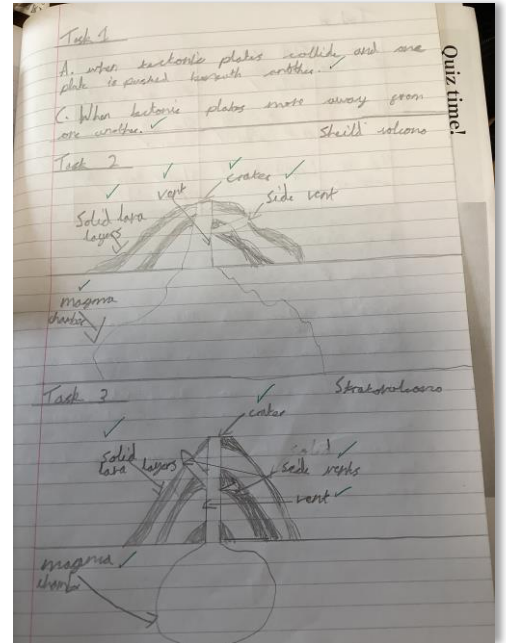 Task 1
A. when tectonic plates collide and one
plate is pushed beneath another.
C. When tectonic plates move away from
one another.
Quiz time!
Sheild volcano
Task 2
vent
crater
Side vent
Solid lava
layers
magma
chamber
Task 3
Stratovolcano
crater
Solid
lava layers
side vents
vent
magma
chamber